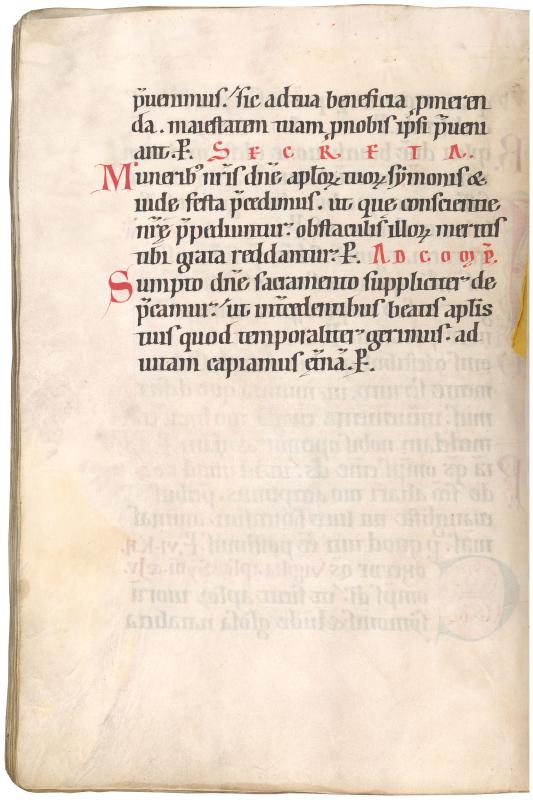 p̄uenimus. sic ad tua beneficia ꝓmeren
da. maiestatem tuam ꝓ nobis ip̄si p̄ueni
ant. P. SECRETA.
Munerib⁹ nr̄is dn̄e apl̄oꝝ tuoꝝ symonis &
iude festa p̄cedimus. ut que conscientie
nr̄ę p̄pediuntur. obstaculis illoꝝ meritis
tibi grata reddantur. P. AD COMP̄.
Sumpto dn̄e sacramento suppliciter de
p̄camur. ut int̄cedentibus beatis apl̄is
tuis quod temporaliter gerimus. ad
uitam capiamus et̄nā. P.